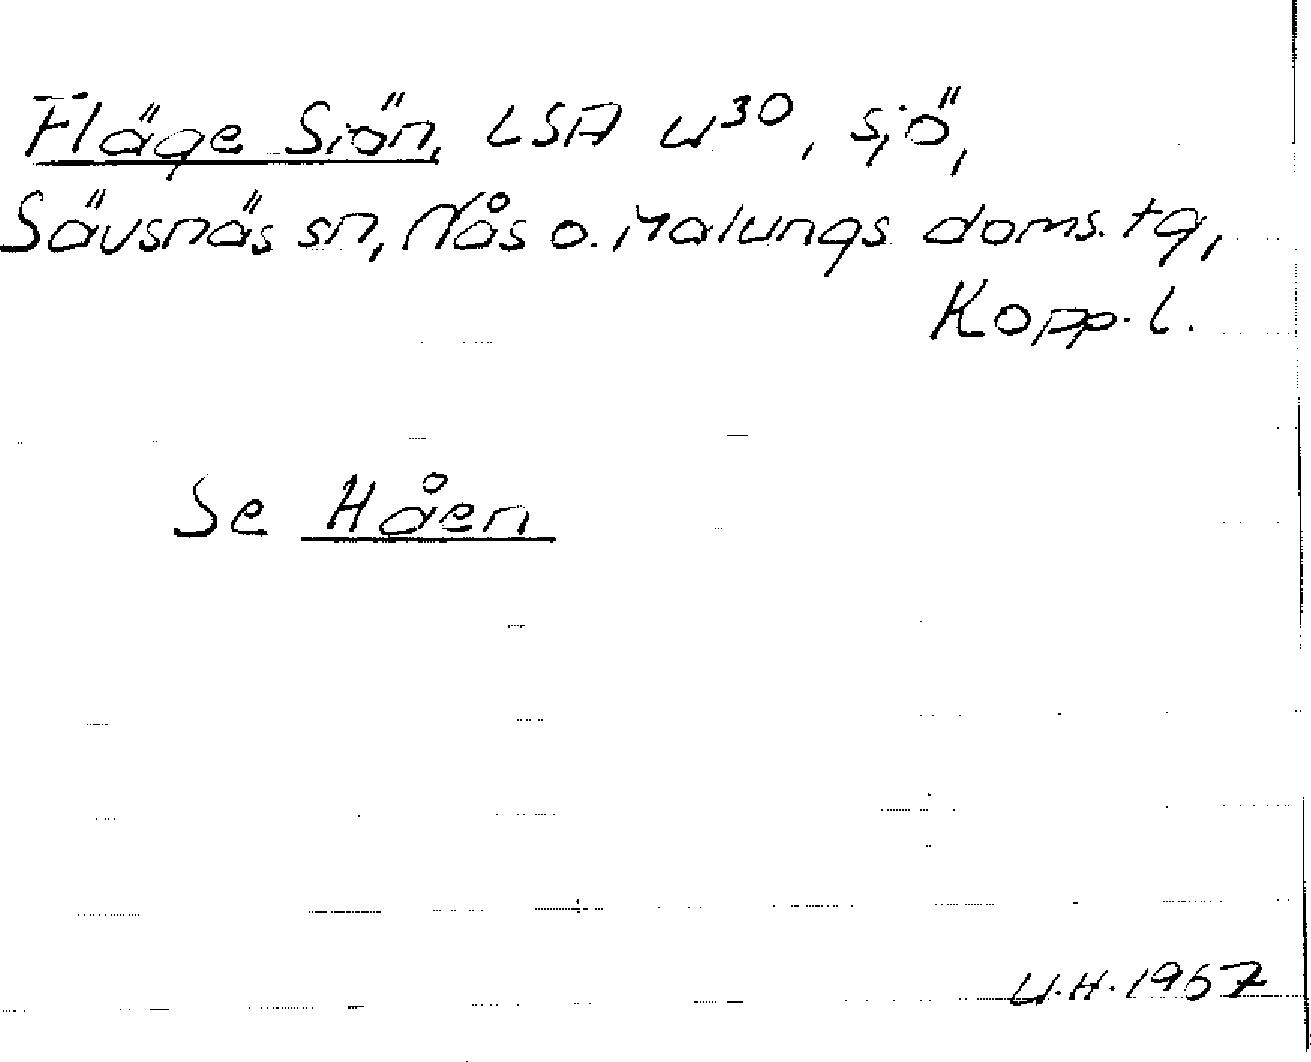 Fläge Siön, LSA U³⁰, sjö,
Sävsnäs sn, Nås o. Malungs doms. tg,
Kopp. l.
Se Håen
U.H. 1967